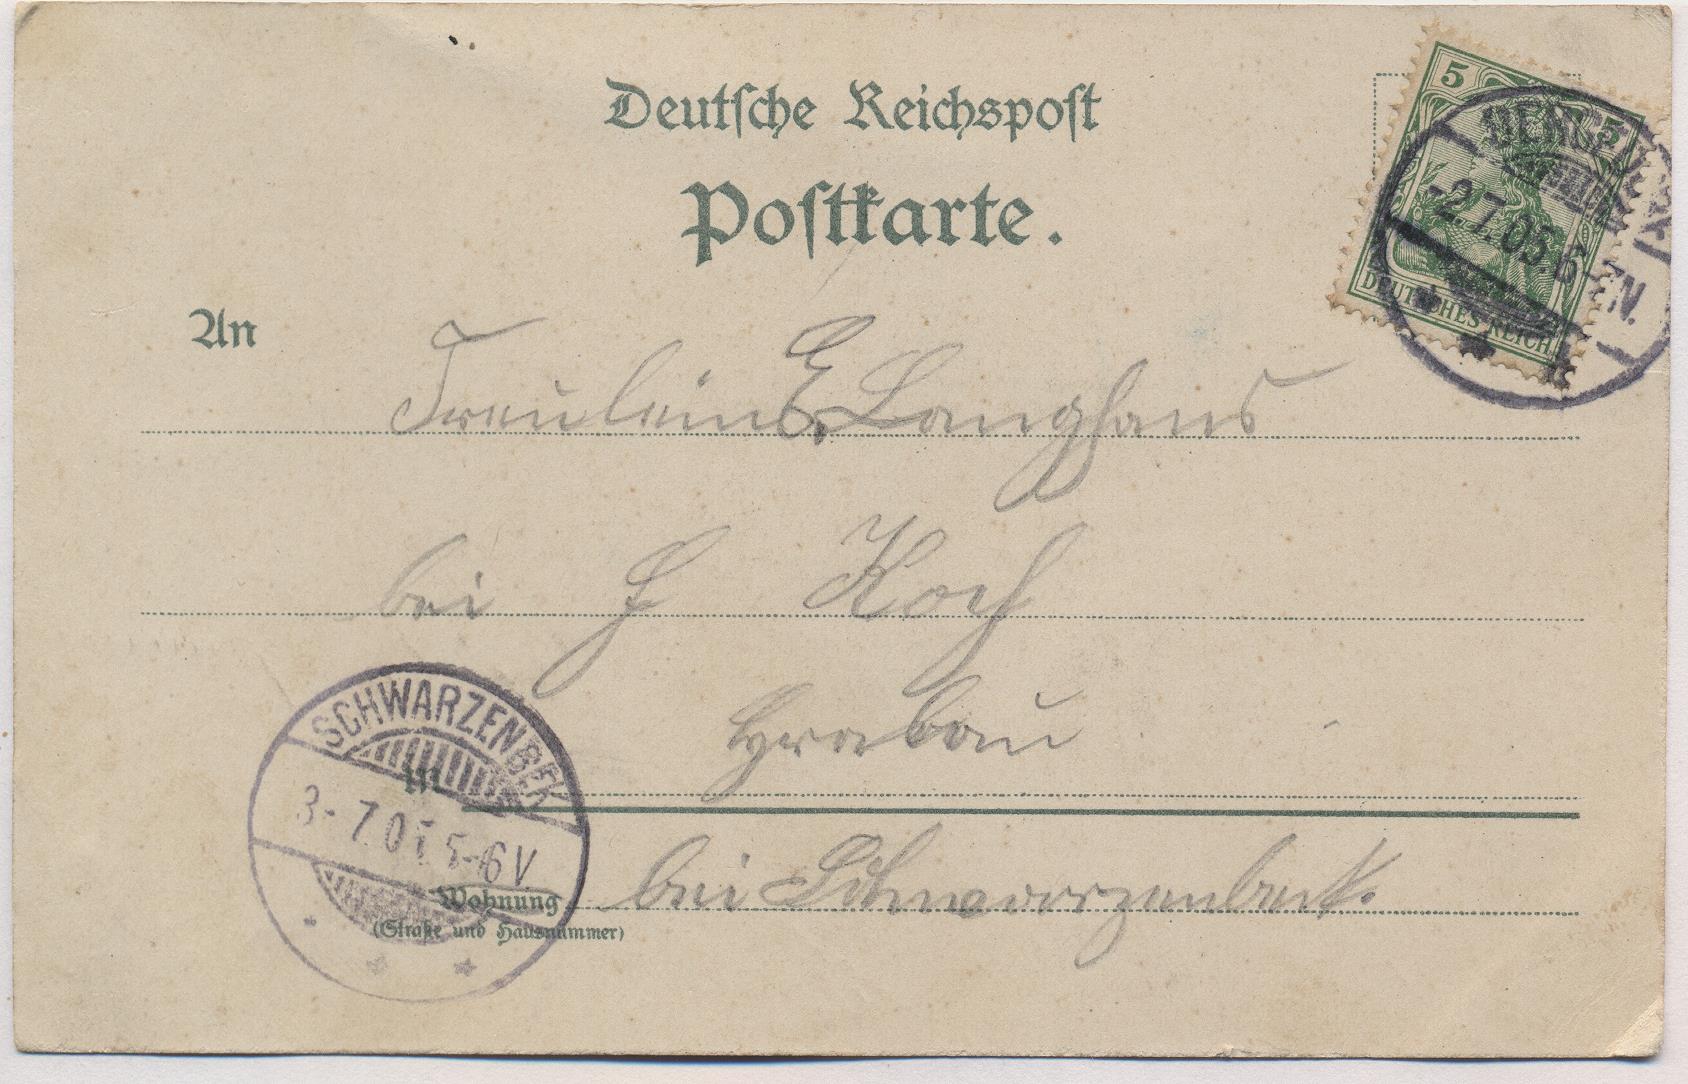 Deutsche Reichspost
Postkarte.
5 5
DEUTSCHES REICH
-2.7.05. 6-7N.
An
Fräulein E. Langhans
bei H Koch
Grabau
SCHWARZENBEK
3-7.05 5-6V
M
Wohnung
(Straße und Hausnummer)
bei Schwarzenbeck.